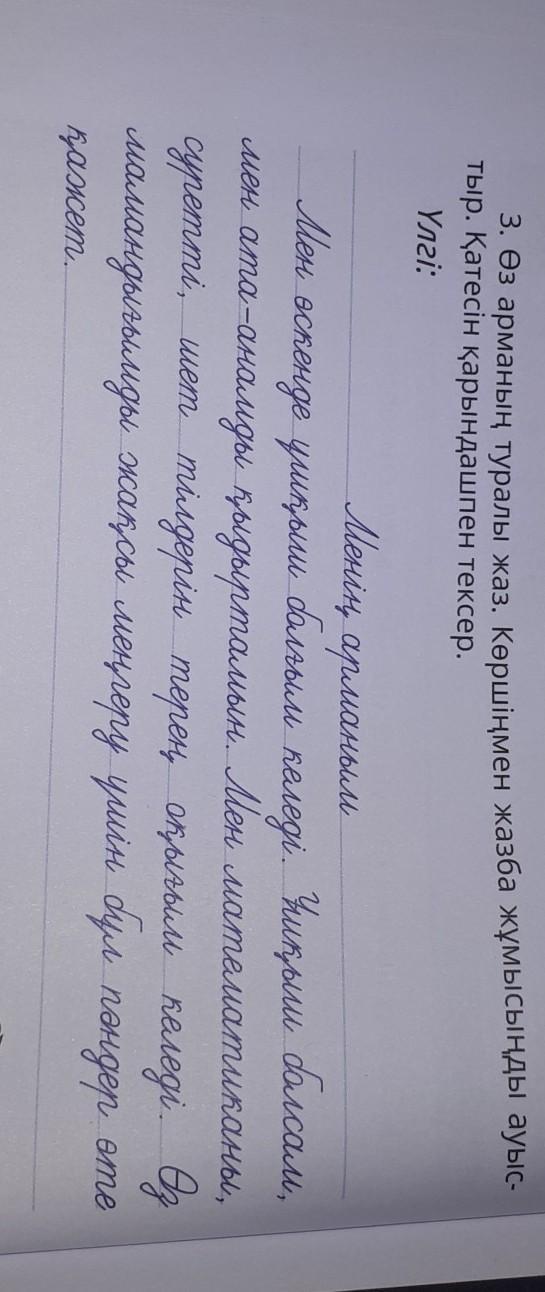 3. Өз арманың туралы жаз. Көршіңмен жазба жұмысыңды ауыс-
тыр. Қатесін қарындашпен тексер.
Үлгі:
Менің арманым
Мен өскенде ұшқыш болғым келеді. Ұшқыш болсам,
мен ата-анамды қыдыртамын. Мен математиканы,
суретті, шет тілдерін терең оқығым келеді. Өз
мамандығымды жақсы меңгеру үшін бұл пәндер өте
қажет.